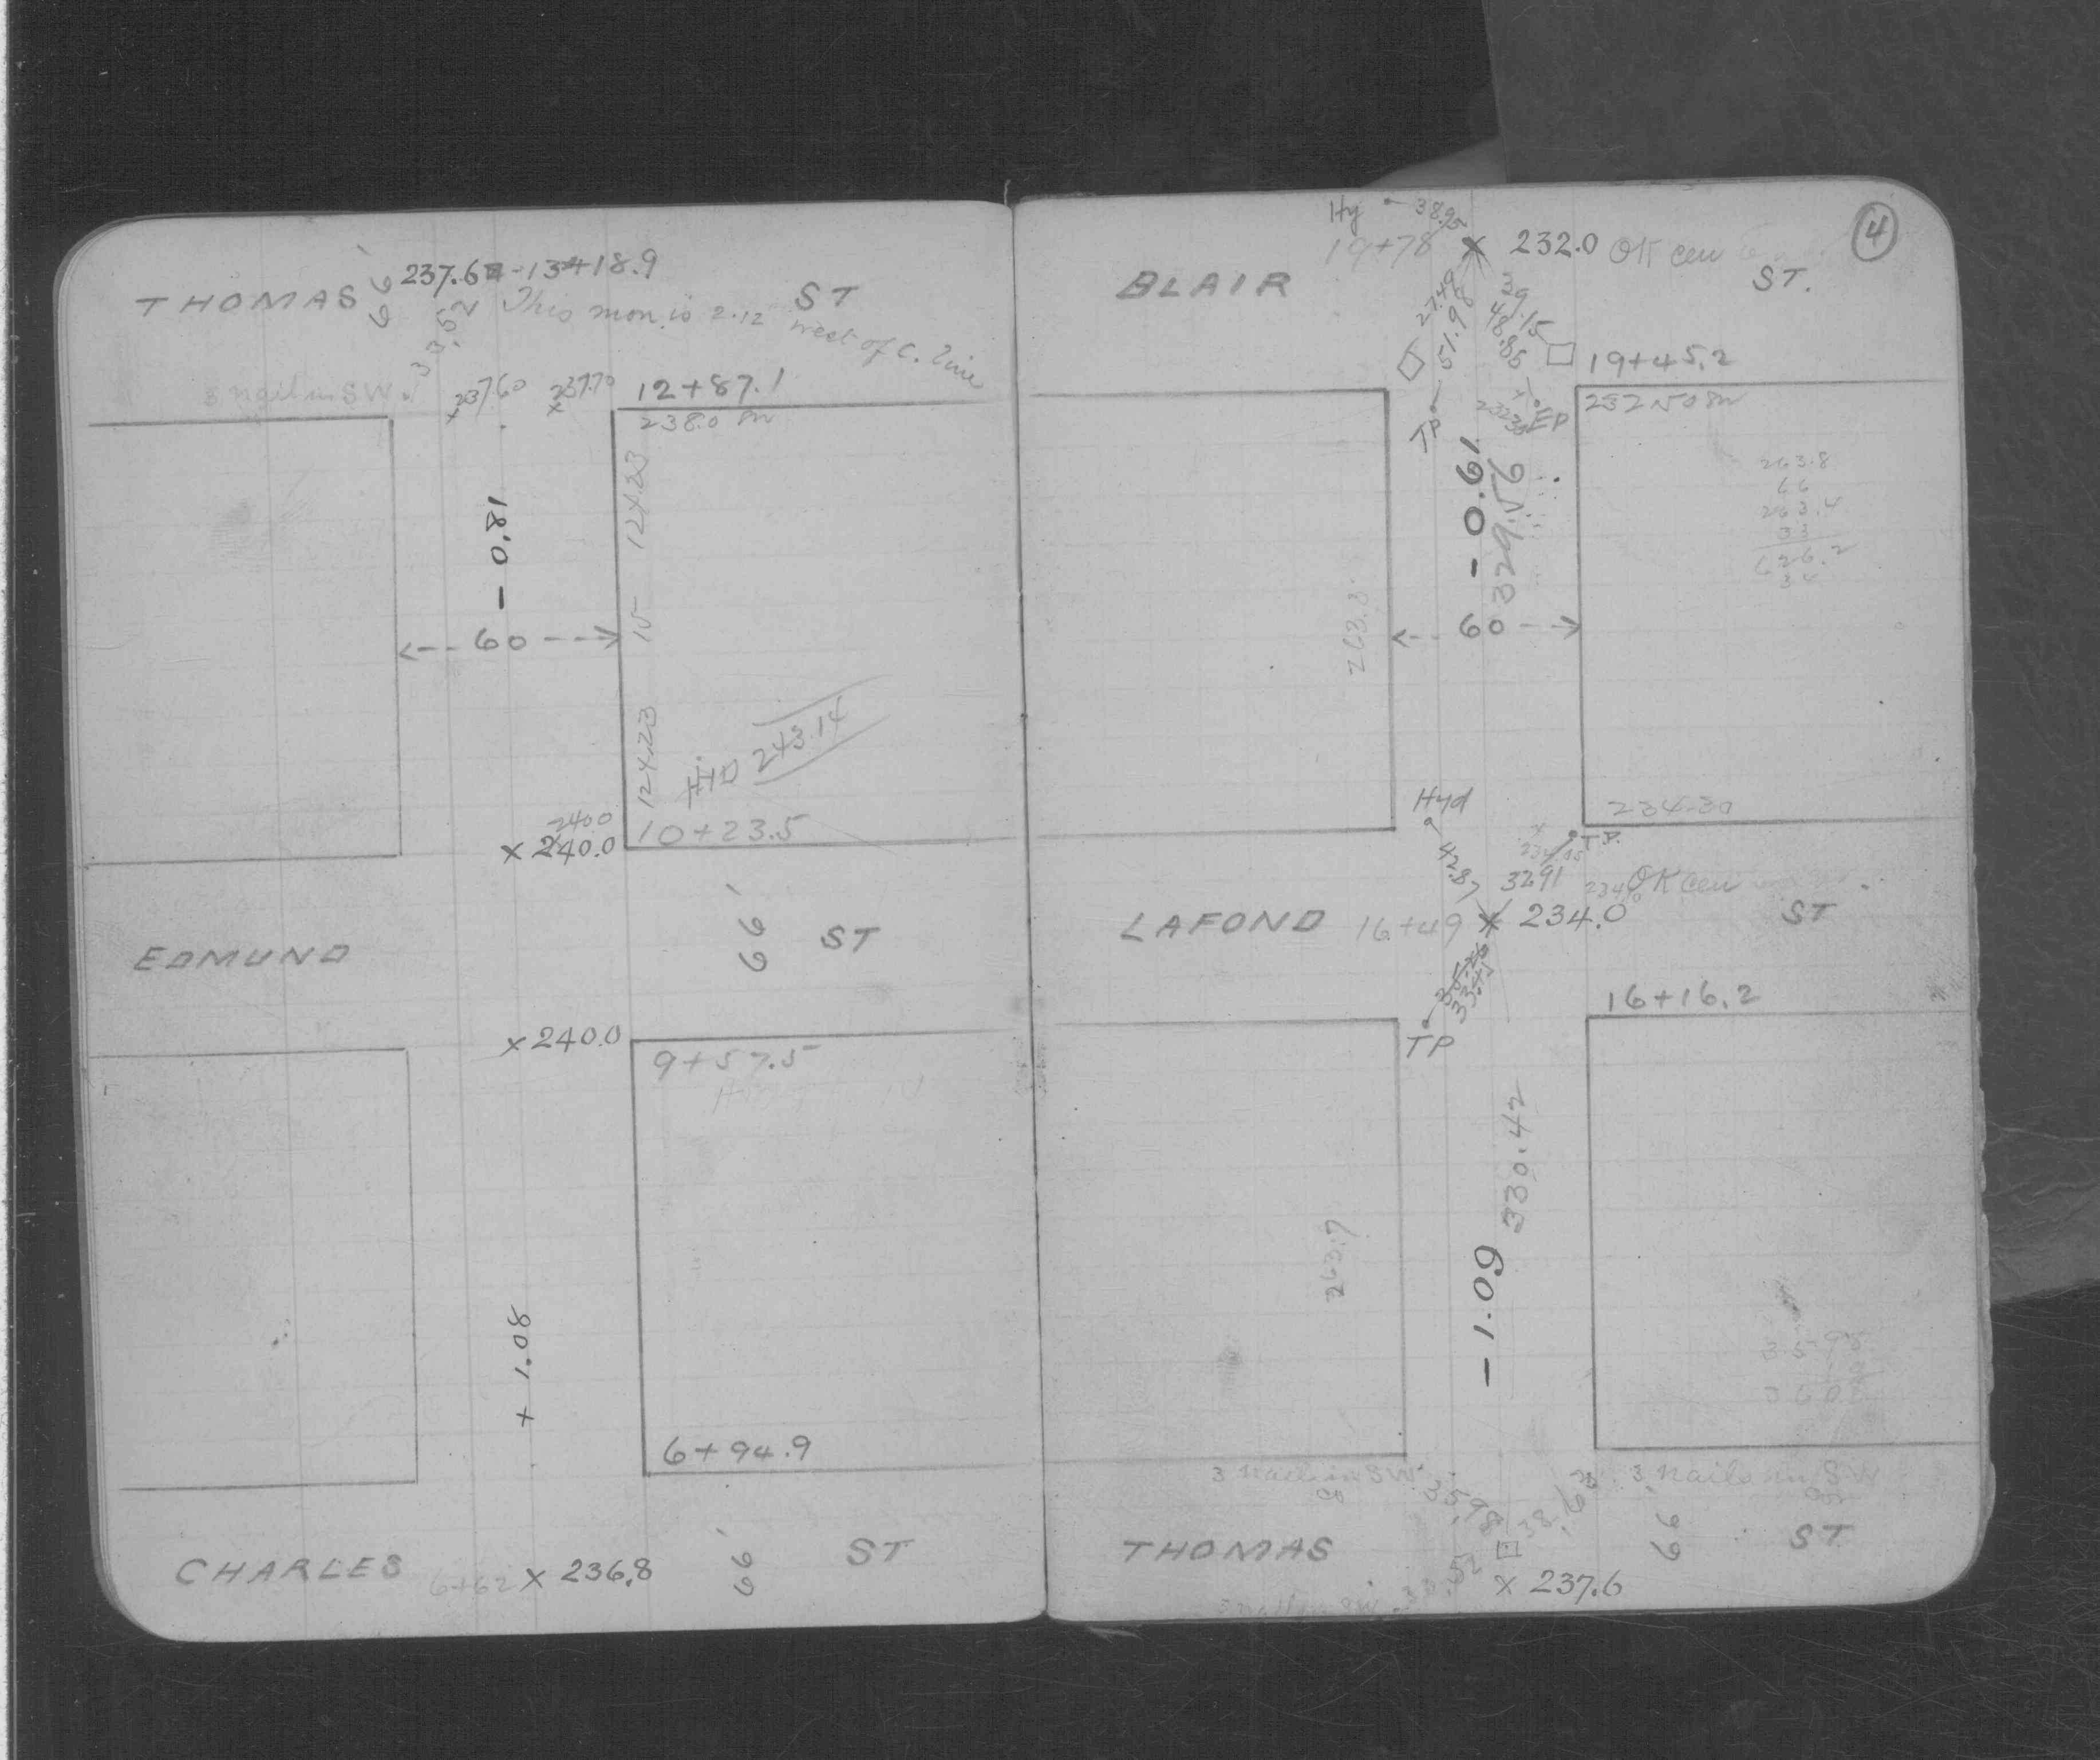 237.6 - 13+18.9
THOMAS 66' ST
This mon. is 2.12 west of C. line
33.52
3 nail in SW.
×237.60 ×237.70 12+87.1
238.0
124.23
- 0.81
15
<-- 60 -->
124.23
HTD 243.14
240.0
× 240.0 10+23.5
66'
EDMUND ST
×240.0
9+57.5
+ 1.08
6+94.9
CHARLES 6+62 × 236.8 66' ST
4
Hy 38.95
19+78 × 232.0 OK cen
BLAIR ST.
27.49 39.15
51.98 48.85
19+45.2
TP EP
263.8
66
263.4
33
626.2
34
- 0.61
263.8
<-- 60 -->
Hyd
234.30
TP.
42.87 32.91 OK cen
LAFOND 16+49 × 234.0 ST
33.45
TP
16+16.2
330.42
263.7
- 1.09
3 nails in SW. 3 nails in SW
35.98 38.63
THOMAS 66' ST
33.52
× 237.6